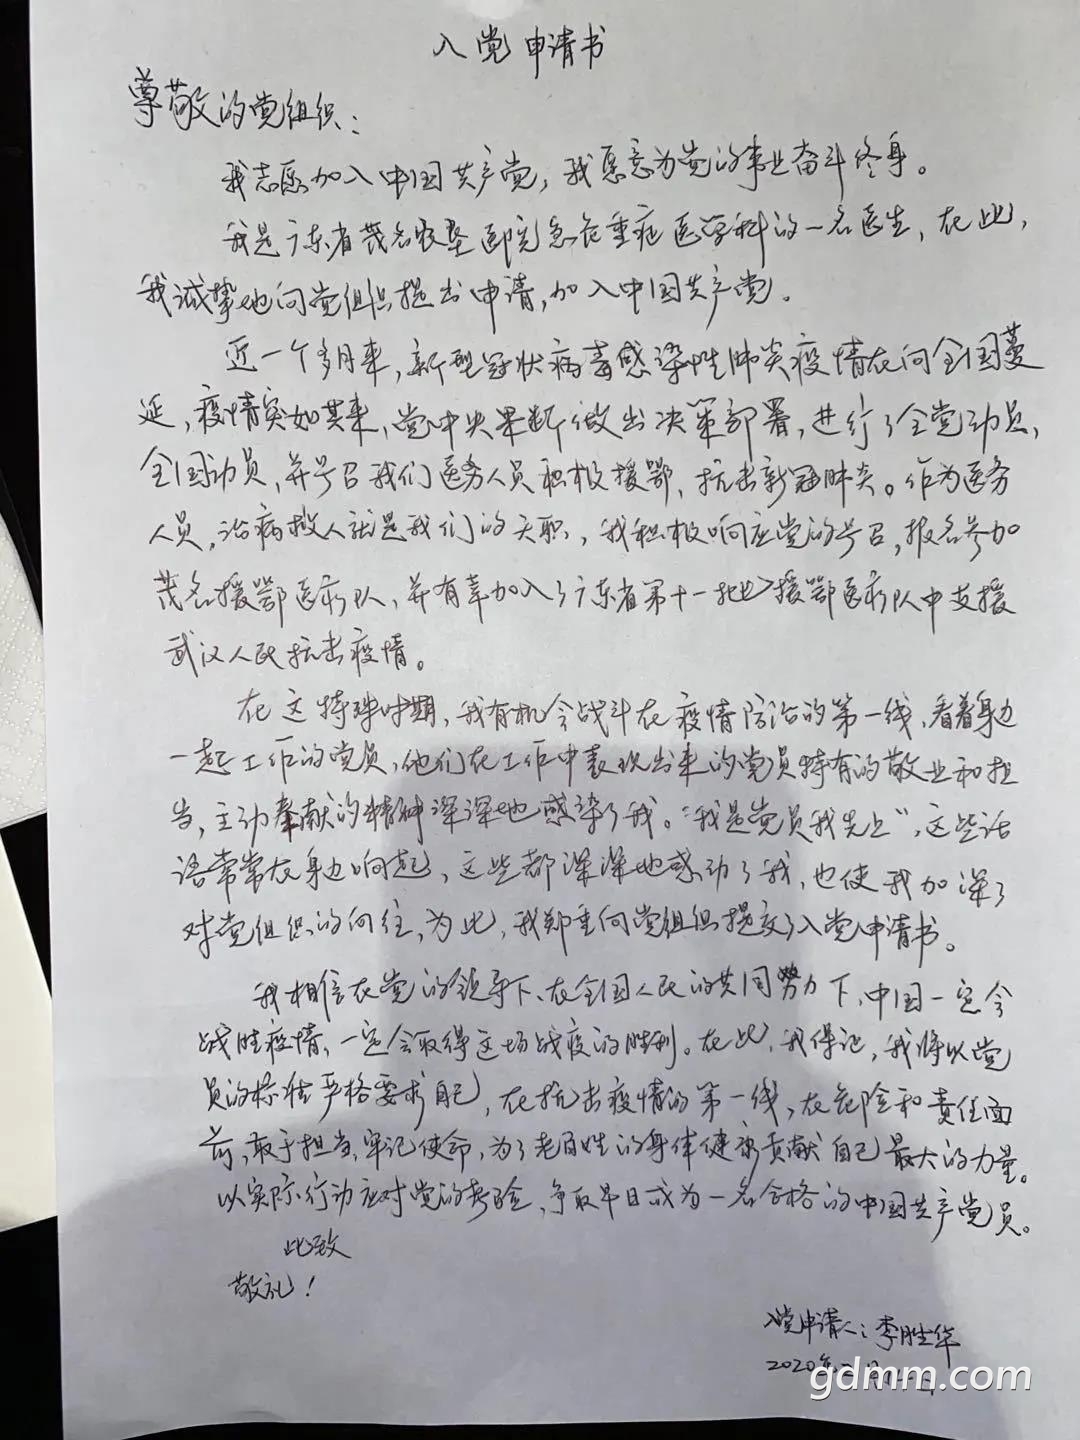 入党申请书
尊敬的党组织：
我志愿加入中国共产党，我愿意为党的事业奋斗终身。
我是广东省茂名农垦医院急危重症医学科的一名医生，在此，
我诚挚地向党组织提出申请，加入中国共产党。
近一个多月来，新型冠状病毒感染性肺炎疫情在向全国蔓
延，疫情突如其来，党中央果断做出决策部署，进行了全党动员，
全国动员，并号召我们医务人员积极援鄂，抗击新冠肺炎。作为医务
人员，治病救人就是我们的天职，我积极响应党的号召，报名参加
茂名援鄂医疗队，并有幸加入了广东省第十一批援鄂医疗队中支援
武汉人民抗击疫情。
在这特殊时期，我有机会战斗在疫情防治的第一线，看着身边
一起工作的党员，他们在工作中表现出来的党员特有的敬业和担
当，主动奉献的精神深深地感染了我。“我是党员我先上”，这些话
语常常在身边响起，这些都深深地感动了我，也使我加深了
对党组织的向往，为此，我郑重向党组织提交了入党申请书。
我相信在党的领导下、在全国人民的共同努力下，中国一定会
战胜疫情，一定会取得这场战疫的胜利。在此，我保证，我将以党
员的标准严格要求自己，在抗击疫情的第一线，在危险和责任面
前，敢于担当，牢记使命，为了老百姓的身体健康贡献自己最大的力量。
以实际行动应对党的考验，争取早日成为一名合格的中国共产党员。
此致
敬礼！
入党申请人：李胜华
2020年
gdmm.com